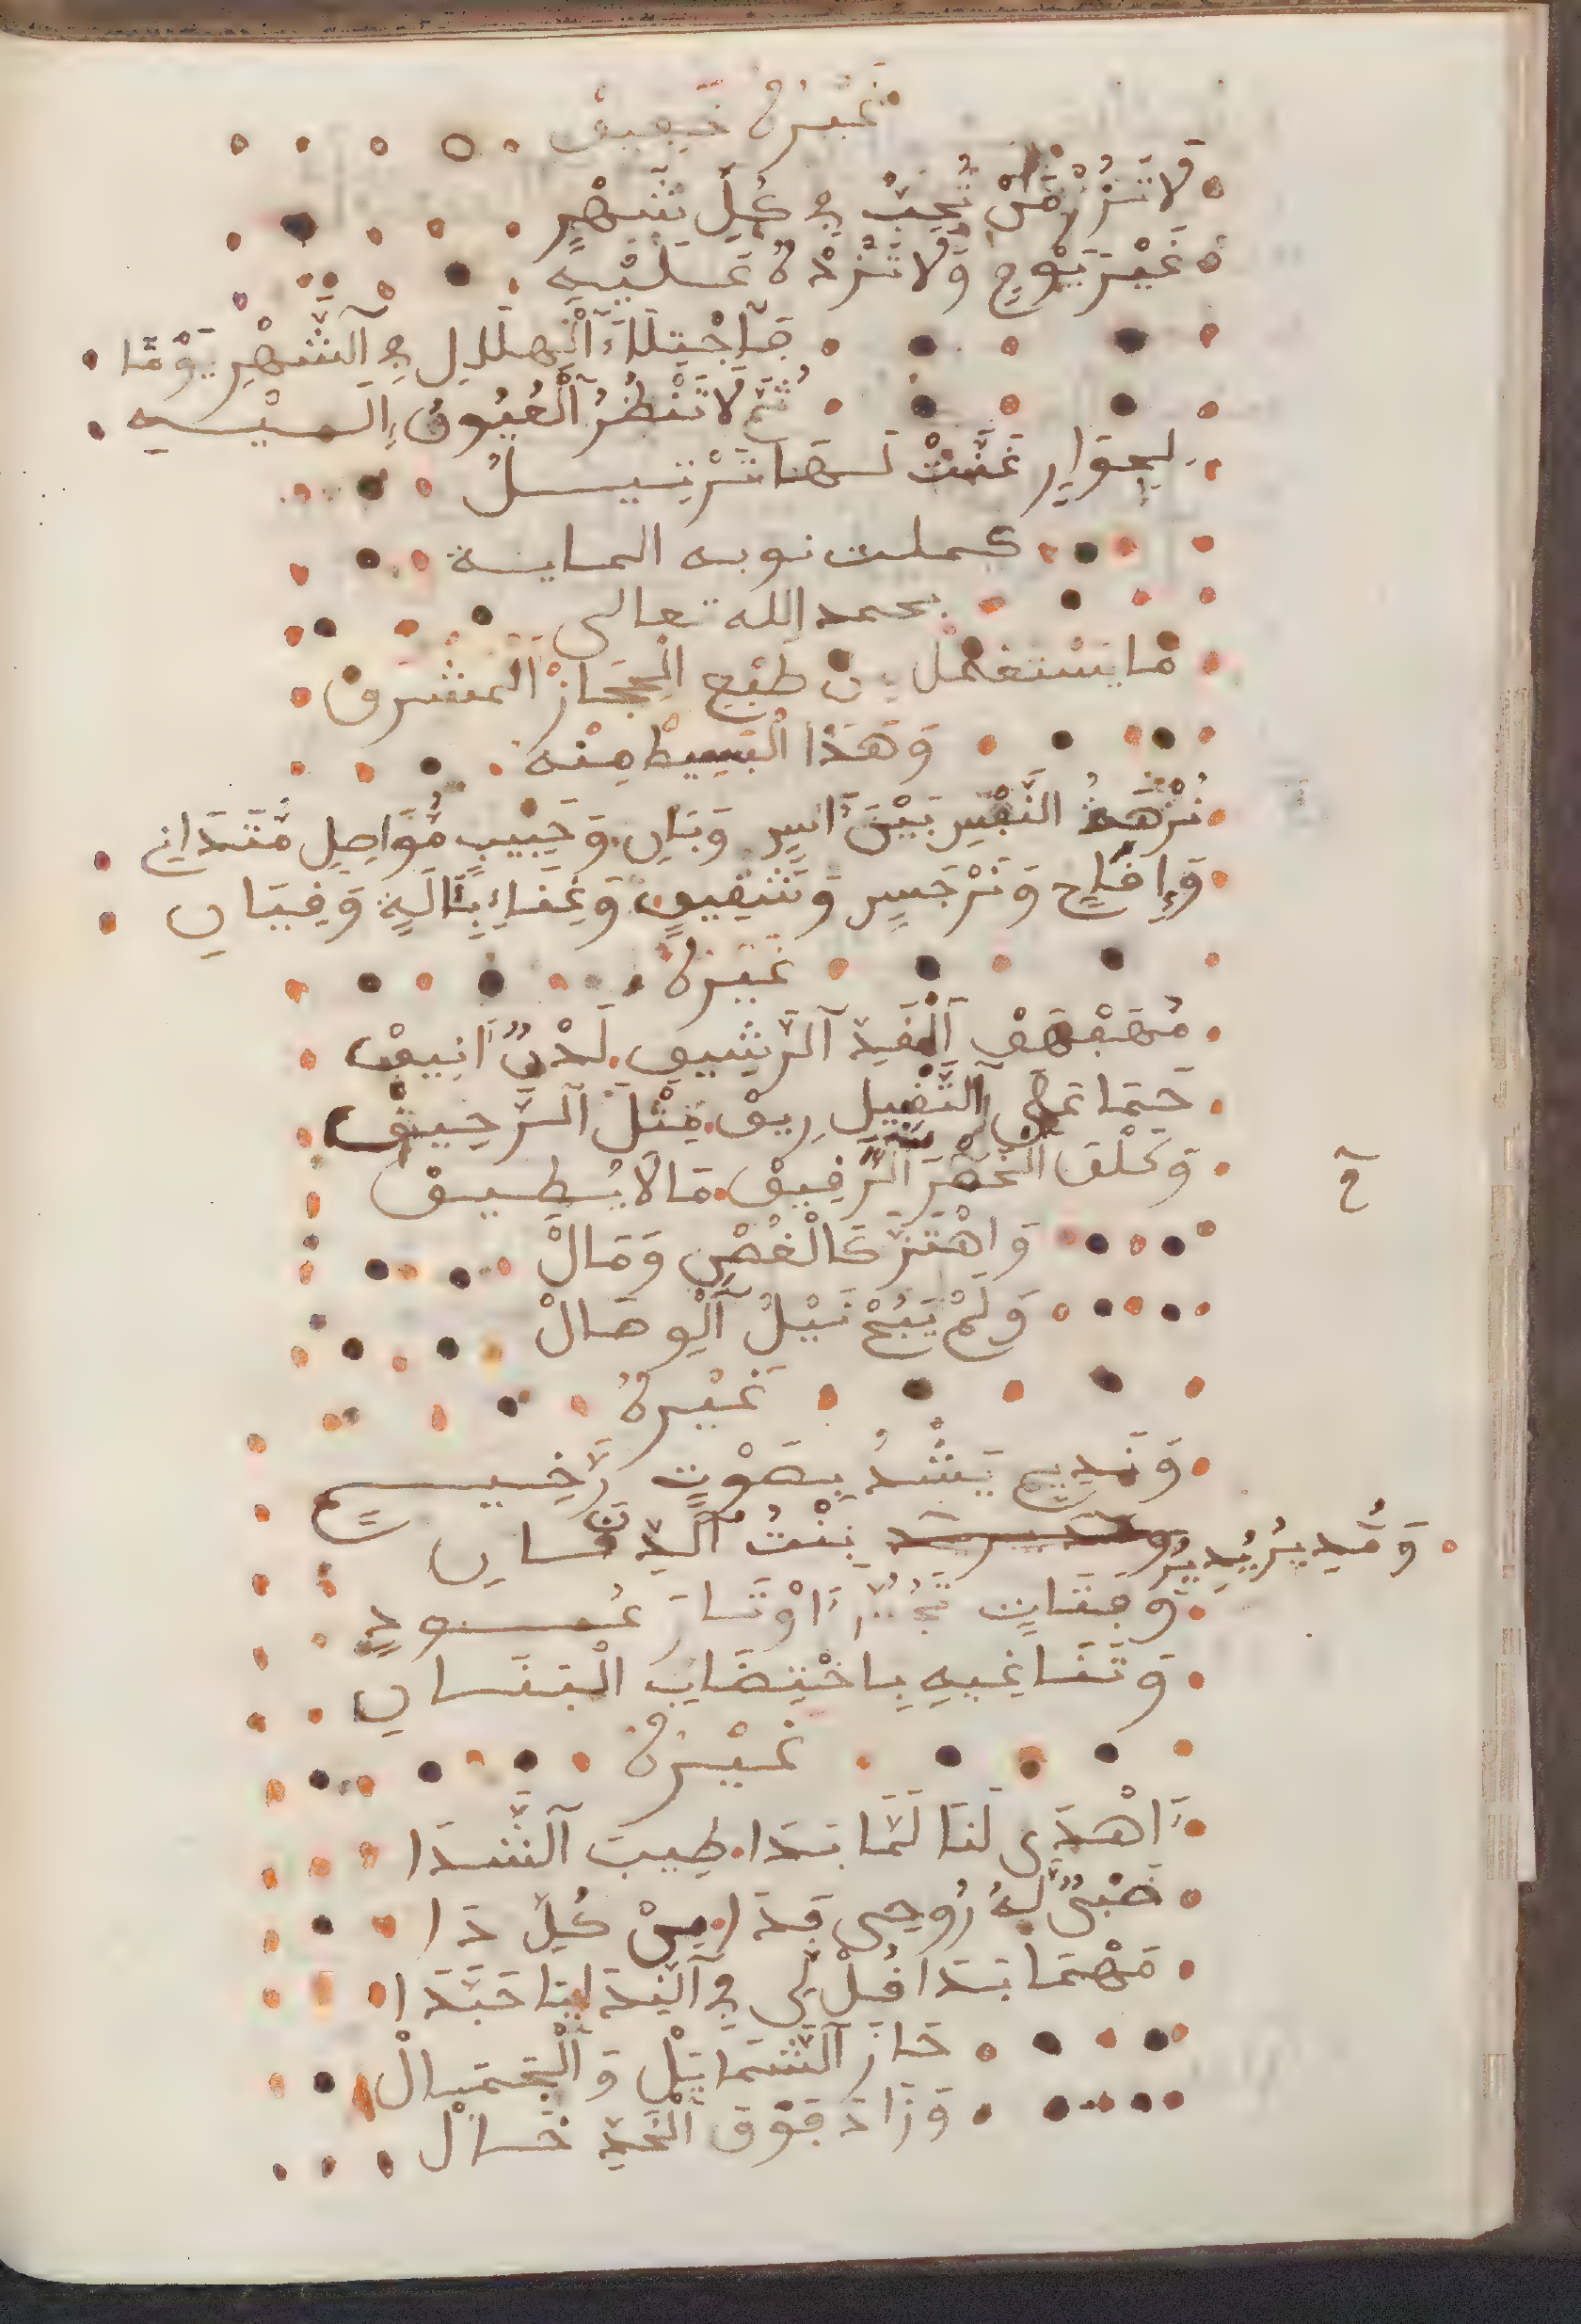 غَيْرُهُ خَفِيفْ
لَا تَزُرْ مَّنْ تُحِبُّ فِي كُلِّ شَهْرٍ
غَيْرَ يَوْمٍ وَّلَا تَزِدْهُ عَلَيْهِ
فَاجْتِلَاءُ الْهِلَالِ فِي الشَّهْرِ يَوْمًا
ثُمَّ لَا تَنْظُرُ الْعُيُونُ إِلَيْهِ
لِجِوَارٍ غَنَّتْ لَهَا تَرْتِيلُ
كملت نوبه الماية
بحمد الله تعالى
مَا يستعمل من طَبْعِ الْحِجَازْ الْمَشْرَقِي
وَهَذَا الْبَسِيطْ مِنْه
نُزْهَةُ النَّفْسِ بَيْنَ آسٍ وَبَانٍ وَحَبِيبٍ مُّوَاصِلٍ مُّتَدَانِ
وَإِقَاحٍ وَنَرْجَسٍ وَشَقِيقٍ وَغِنَاءٍ بِآلَةٍ وَقِيَانِ
غَيْرُهُ
مُهَفْهَفِ الْقَدِّ الرَّشِيقِ لَدْنٌ أَنِيقْ
حَيْمَا عَلَى النَّقِيلِ رِيقْ مِثْلَ الرَّحِيقْ
وَكَلَّفَ الْخَصْرَ الرَّقِيقْ مَا لَا يُطِيقْ
ح
وَاهْتَزَّ كَالْغُصْنِ وَمَالْ
وَلَمْ يُبِحْ نَيْلُ الْوِصَالْ
غَيْرُهُ
وَنَدِيمٍ يَشْدُ بِصَوْتٍ رَّخِيمٍ
وَمُدِيرٌ يُدِيرُ بِنْتُ الدِّنَانِ
وَفَتَاتٍ تَجُرُّ أَوْتَارَ عُودٍ
وَتَنَاغِيهِ بِاخْتِضَابِ الْبَنَانِ
غَيْرُهُ
أَهْدَى لَنَا لَمَّا بَدَا طِيبَ الشَّدَا
ضَبْيٌ لَهُ رُوحِي فِدَا مِنْ كُلِّ دَا
مَهْمَا بَدَا قُلْ لِي فِي النِّدَا يَا حَبَّدَا
حَازَ الشَّمَايِلْ وَالْجَمَالْ
وَزَادَ فَوْقَ الْخَدِّ خَالْ